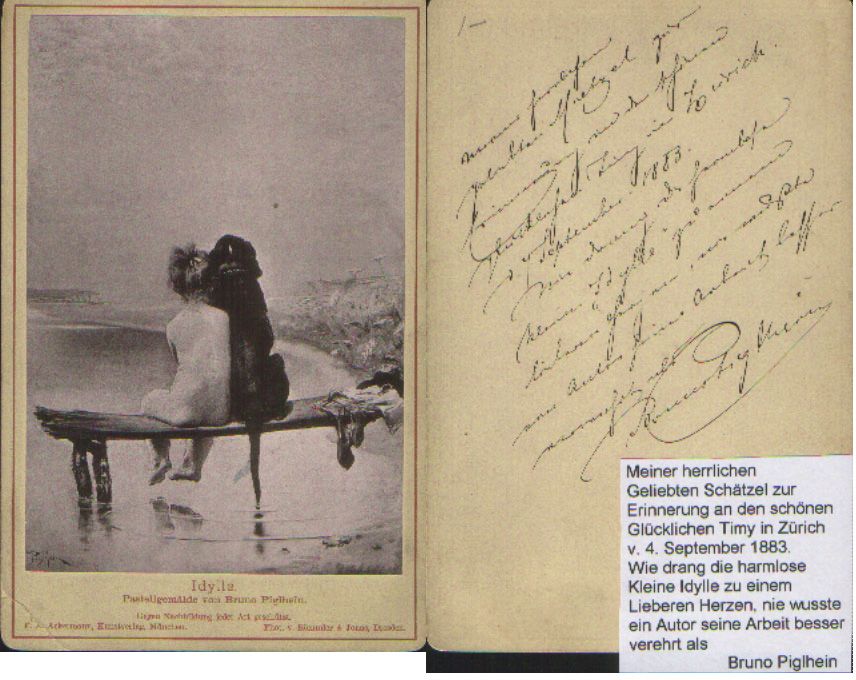 Idylle.
Pastellgemälde von Bruno Piglhein.
Gegen Nachbildung jeder Art geschützt.
F. A. Ackermann, Kunstverlag, München. Phot. v. Römmler & Jonas, Dresden.
1–
geliebten zur
Erinnerung an die schönen
glücklichen in Zürich.
September 1883.
Wie drang die harmlose
kleine "Idylle" zu einem
Herzen, nie wusste
ein Autor seine Arbeit besser
als
Bruno Piglhein
Meiner herrlichen
Geliebten Schätzel zur
Erinnerung an den schönen
Glücklichen Timy in Zürich
v. 4. September 1883.
Wie drang die harmlose
Kleine Idylle zu einem
Lieberen Herzen, nie wusste
ein Autor seine Arbeit besser
verehrt als
Bruno Piglhein